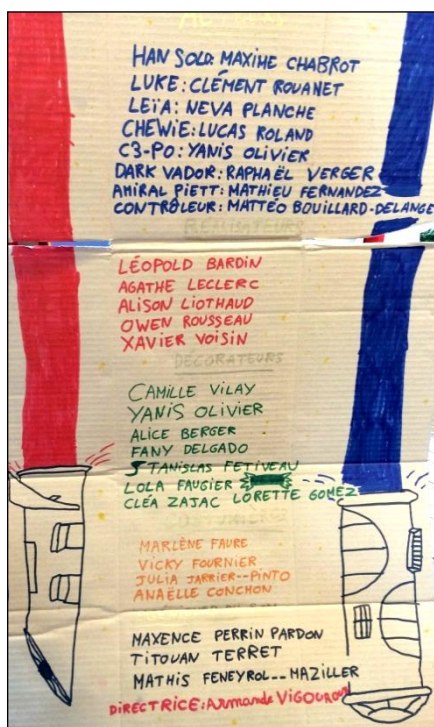 HAN SOLO: MAXIME CHABROT
LUKE: CLÉMENT ROUANET
LEïA: NEVA PLANCHE
CHEWiE: LUCAS ROLAND
C3-PO: YANIS OLIVIER
DARK VADOR: RAPHAËL VERGER
AMIRAL PIETT: MATHIEU FERNANDEZ
CONTRÔLEUR: MATTÉO BOUILLARD-DELANGE
RÉALISATEURS
LÉOPOLD BARDIN
AGATHE LECLERC
ALISON LIOTHAUD
OWEN ROUSSEAU
XAVIER VOISIN
DÉCORATEURS
CAMILLE VILAY
YANIS OLIVIER
ALICE BERGER
FANY DELGADO
STANISLAS FETIVEAU
LOLA FAUGIER
CLÉA ZAJAC LORETTE GOMEZ
MARLÈNE FAURE
VICKY FOURNIER
JULIA JARRIER--PINTO
ANAËLLE CONCHON
MAXENCE PERRIN PARDON
TITOUAN TERRET
MATHIS FENEYROL--MAZILLER
DIRECTRICE: Armande VIGOUROUX